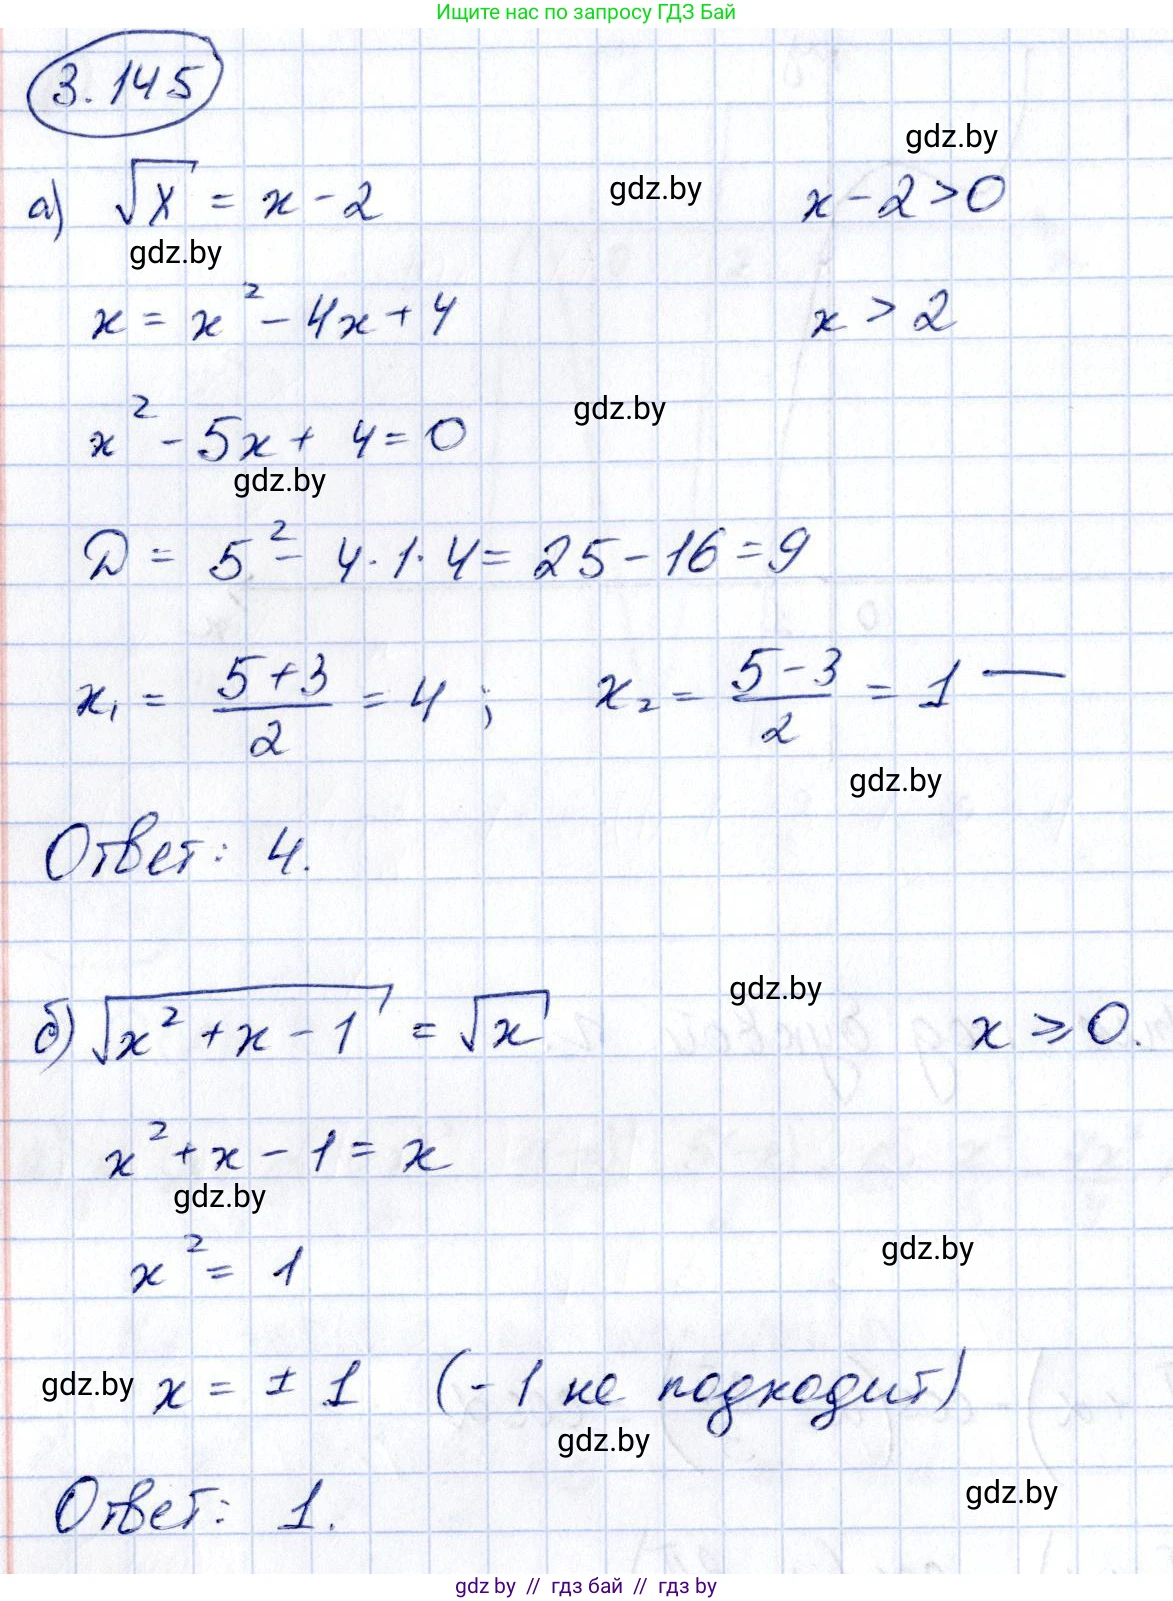 Ищите нас по запросу ГДЗ Бай
3.145
gdz.by
а) √x = x - 2 gdz.by x - 2 > 0
gdz.by
x = x² - 4x + 4 x > 2
gdz.by
x² - 5x + 4 = 0
gdz.by
D = 5² - 4·1·4 = 25 - 16 = 9
x₁ = (5+3)/2 = 4 ; x₂ = (5-3)/2 = 1 —
gdz.by
Ответ: 4.
gdz.by
б) √(x² + x - 1) = √x x ⩾ 0.
x² + x - 1 = x
gdz.by
gdz.by
x² = 1
gdz.by x = ± 1 (-1 не подходит)
gdz.by
gdz.by
Ответ: 1.
gdz by // гдз бай // gdz by